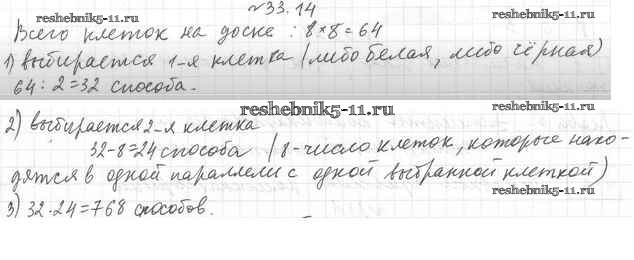 №33.14
www.reshebnik5-11.ru
Всего клеток на доске: 8×8=64
1) выбирается 1-я клетка (либо белая, либо чёрная)
64:2=32 способа.
www.reshebnik5-11.ru
reshebnik5-11.ru
2) выбирается 2-я клетка
32-8=24 способа (8-число клеток, которые нахо-
дятся в одной параллели с одной выбранной клеткой)
www.reshebnik5-11.ru
3) 32·24=768 способов.